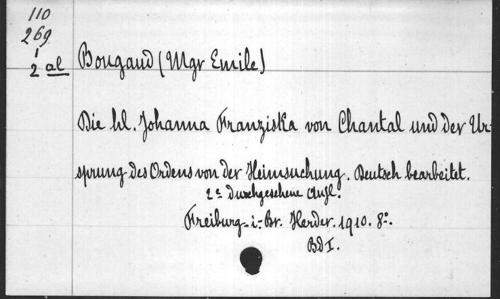 110
269
1
2 al
Bougaud (Mgr Emile)
Die hl. Johanna Franziska von Chantal und der Ur-
sprung des Ordens von der Heimsuchung. Deutsch bearbeitet.
2e durchgesehene Aufl.
Freiburg-i-Br. Herder. 1910. 8o.
Bd I.